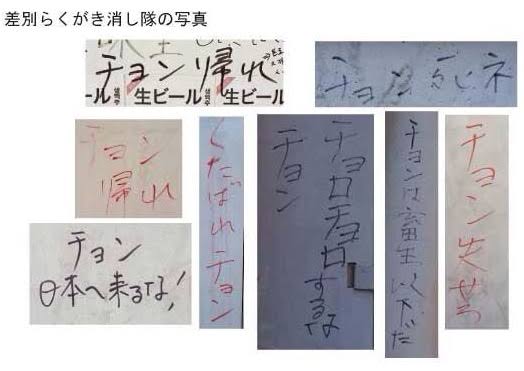 差別らくがき消し隊の写真
チョン帰れ
ール 생맥주 生ビール 생맥주 生ビール
チョン死ネ
チョン
帰れ
くたばれチョン
チョロチョロするな
チョン
チョンは畜生以下だ
チョン失せろ
チョン
日本へ来るな!